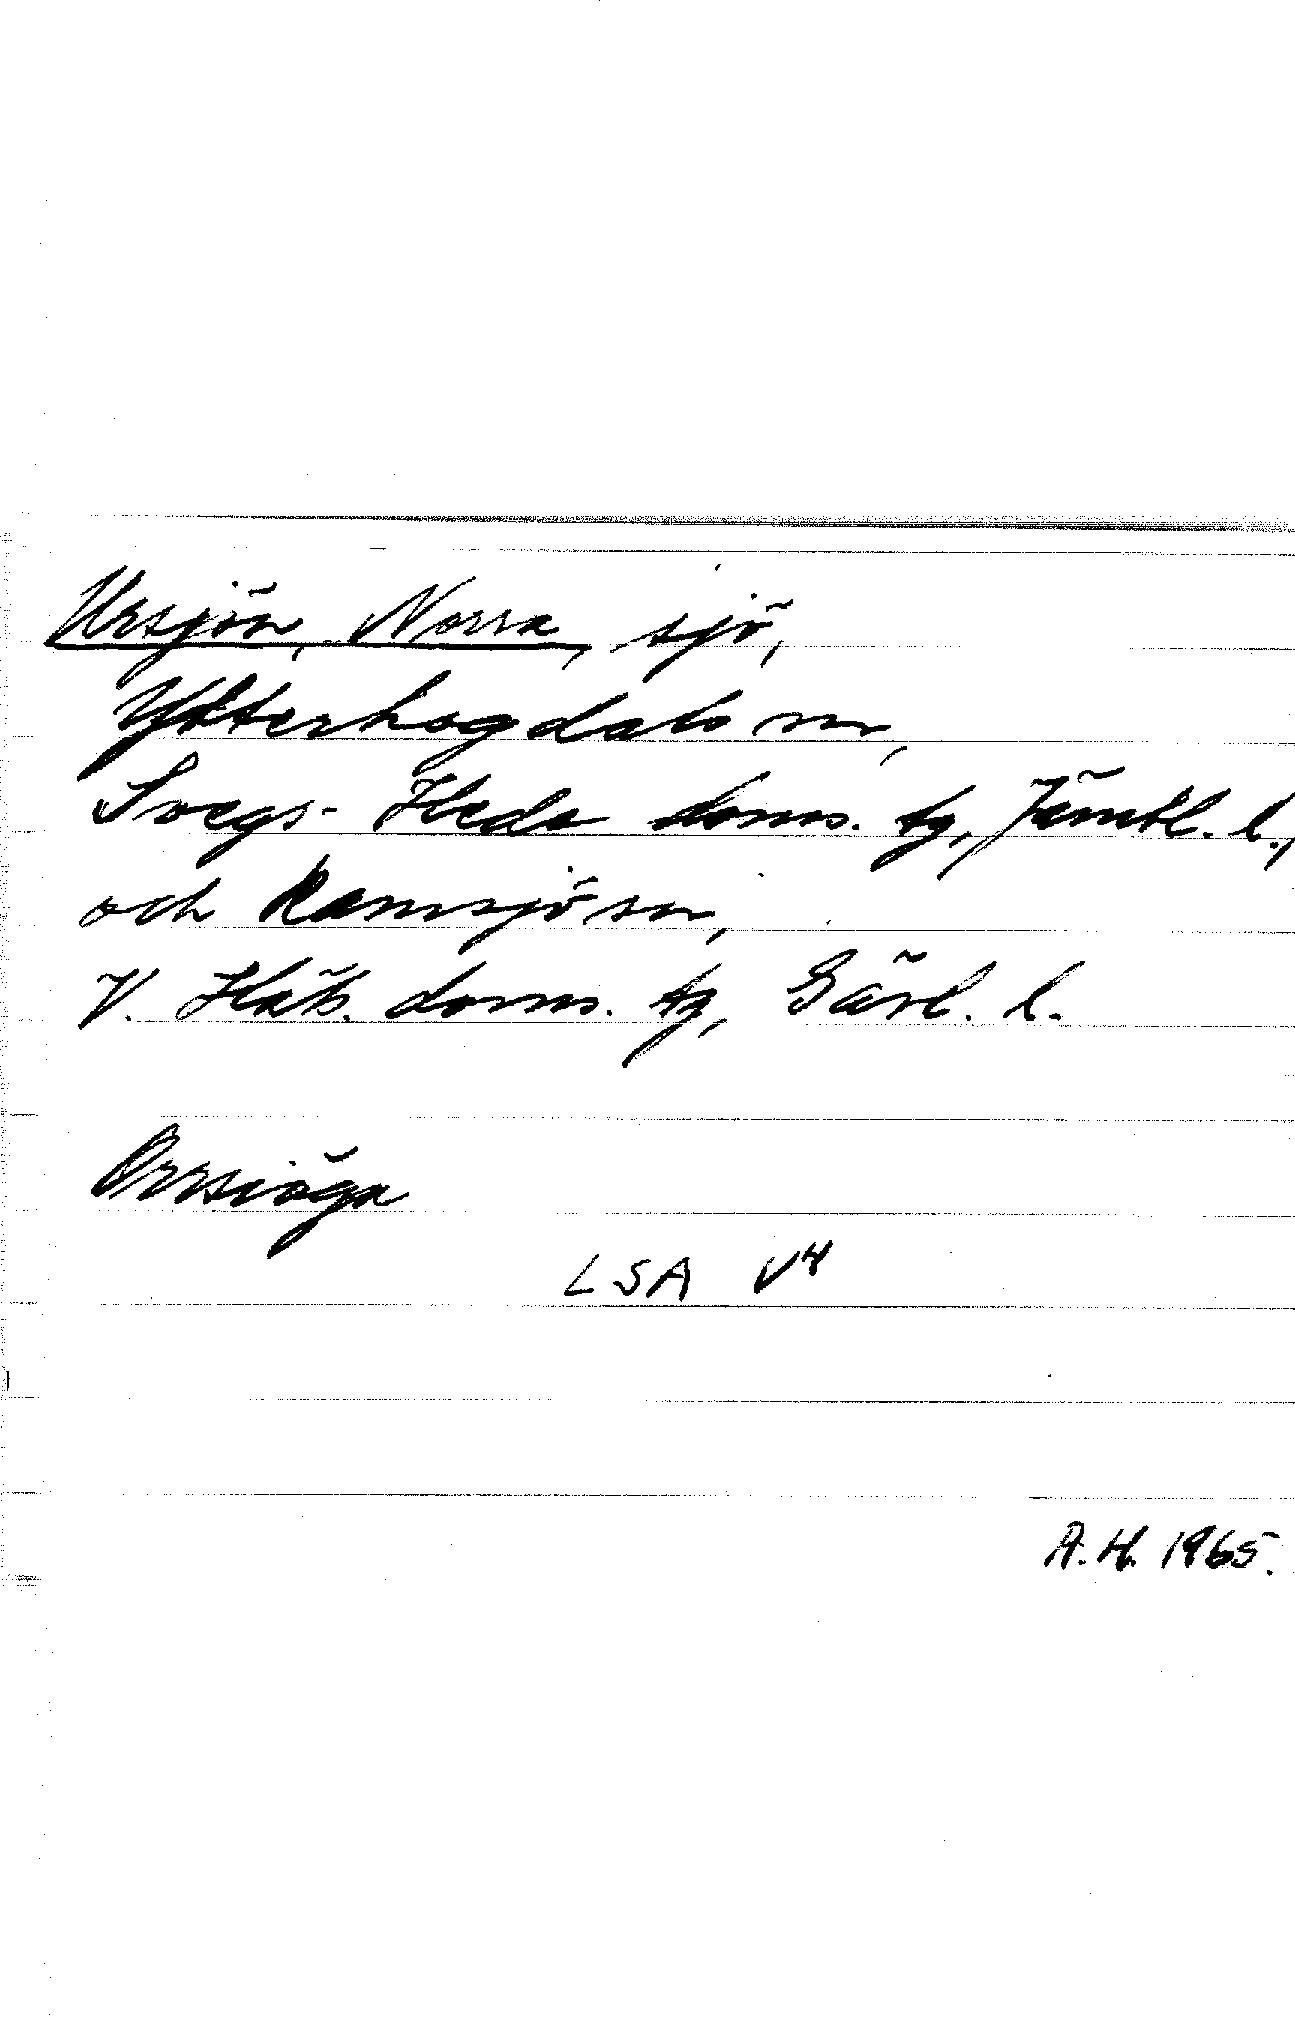 Ursjön, Norra, sjö,
Ytterhogdals sn,
Svegs-Hede doms. tg, Jämtl. l.,
och Ramsjö sn,
V. Häls. doms. tg, Gävl. l.
Orrsiöga
LSA V4
A.H. 1965.